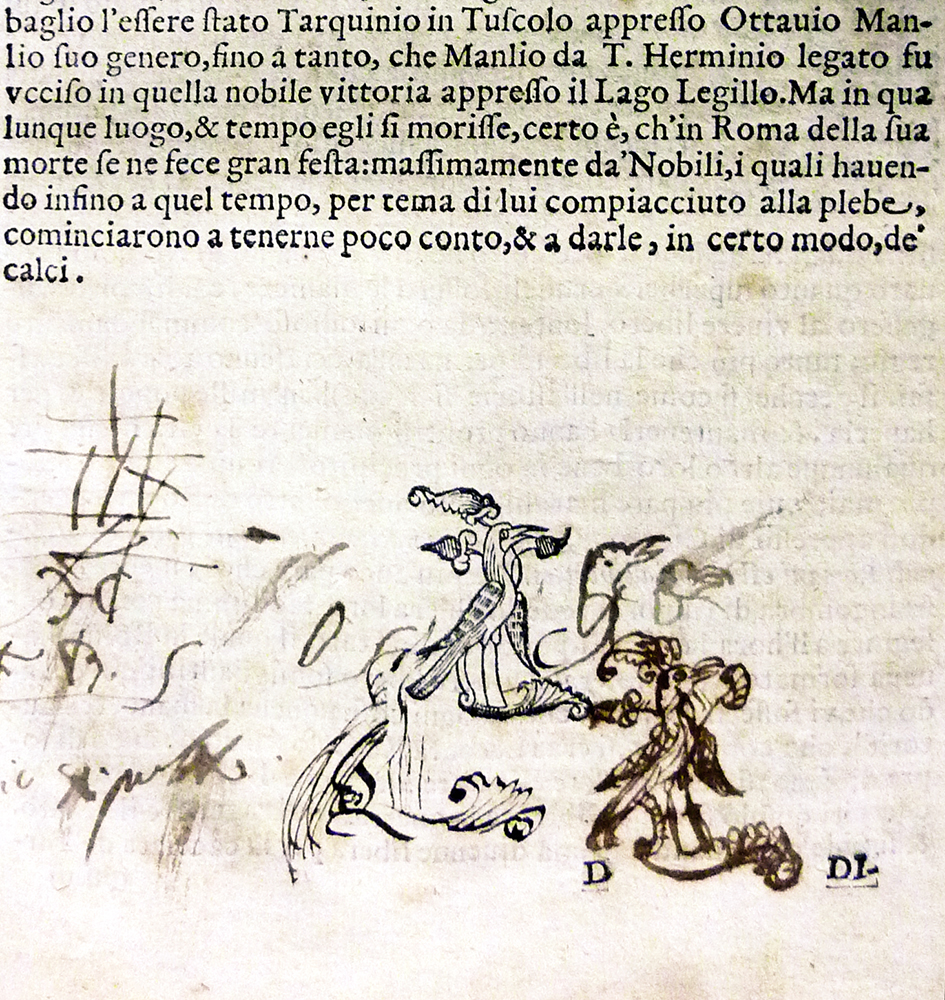 baglio l'eſſere ſtato Tarquinio in Tuſcolo appreſſo Ottauio Man-
lio ſuo genero,fino à tanto, che Manlio da T. Herminio legato fu
vcciſo in quella nobile vittoria appreſſo il Lago Legillo.Ma in qua
lunque luogo,& tempo egli ſi moriſſe,certo è, ch'in Roma della ſua
morte ſe ne fece gran feſta:maſſimamente da'Nobili,i quali hauen-
do infino a quel tempo, per tema di lui compiacciuto alla plebe,
cominciarono a tenerne poco conto,& a darle, in certo modo,de'
calci.
D DI-